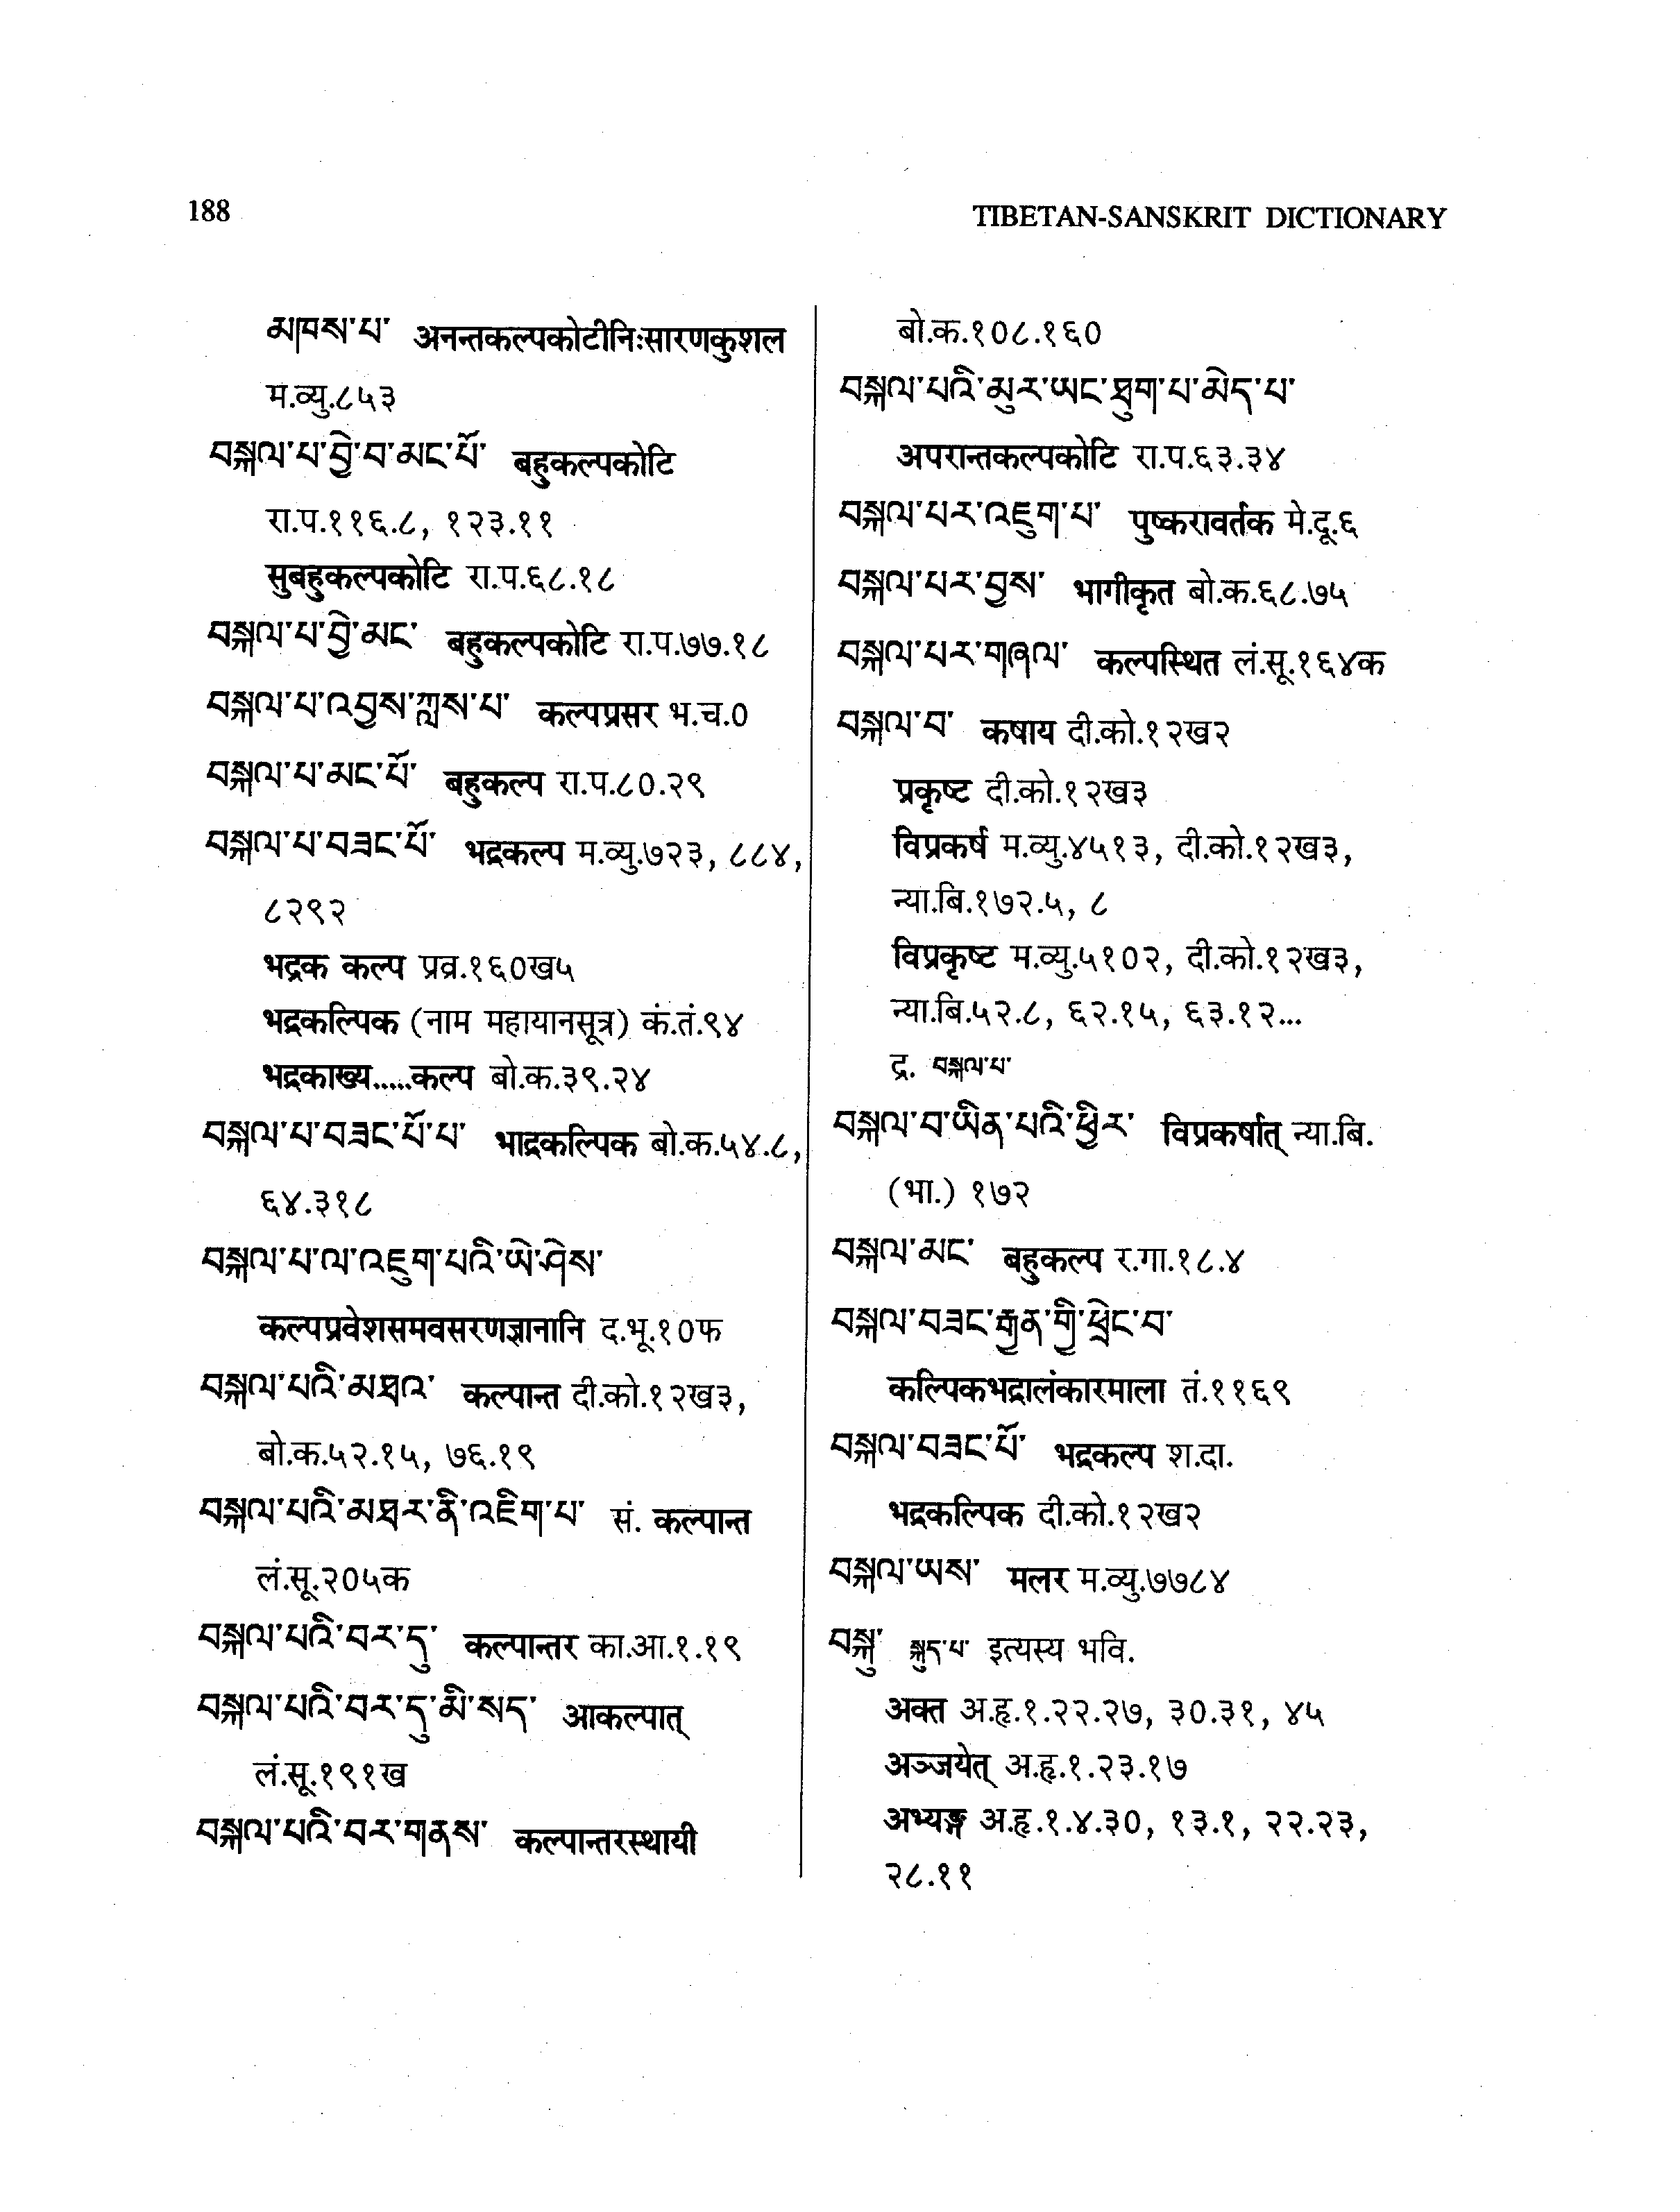 188
TIBETAN-SANSKRIT DICTIONARY
མཁས་པ་ अनन्तकल्पकोटीनिःसारणकुशल
म.व्यु.८५३
བསྐལ་པ་བྱེ་བ་མང་པོ་ बहुकल्पकोटि
रा.प.११६.८, १२३.११
सुबहुकल्पकोटि रा.प.६८.१८
བསྐལ་པ་བྱེ་མང་ बहुकल्पकोटि रा.प.७७.१८
བསྐལ་པ་འབྱས་ཀླས་པ་ कल्पप्रसर भ.च.0
བསྐལ་པ་མང་པོ་ बहुकल्प रा.प.८०.२९
བསྐལ་པ་བཟང་པོ་ भद्रकल्प म.व्यु.७२३, ८८४,
८२९२
भद्रक कल्प प्रव्र.१६०ख५
भद्रकल्पिक (नाम महायानसूत्र) कं.तं.९४
भद्रकाख्य.....कल्प बो.क.३९.२४
བསྐལ་པ་བཟང་པོ་པ་ भाद्रकल्पिक बो.क.५४.८,
६४.३१८
བསྐལ་པ་ལ་འཇུག་པའི་ཡེ་ཤེས་
कल्पप्रवेशसमवसरणज्ञानानि द.भू.१०फ
བསྐལ་པའི་མཐའ་ कल्पान्त दी.को.१२ख३,
बो.क.५२.१५, ७६.१९
བསྐལ་པའི་མཐར་ནི་འཇིག་པ་ सं. कल्पान्त
लं.सू.२०५क
བསྐལ་པའི་བར་དུ་ कल्पान्तर का.आ.१.१९
བསྐལ་པའི་བར་དུ་མི་སད་ आकल्पात्
लं.सू.१९१ख
བསྐལ་པའི་བར་གནས་ कल्पान्तरस्थायी
बो.क.१०८.१६०
བསྐལ་པའི་མུར་ཡང་ཐུག་པ་མེད་པ་
अपरान्तकल्पकोटि रा.प.६३.३४
བསྐལ་པར་འཇུག་པ་ पुष्करावर्तक मे.दू.६
བསྐལ་པར་བྱས་ भागीकृत बो.क.६८.७५
བསྐལ་པར་གཞལ་ कल्पस्थित लं.सू.१६४क
བསྐལ་བ་ कषाय दी.को.१२ख२
प्रकृष्ट दी.को.१२ख३
विप्रकर्ष म.व्यु.४५१३, दी.को.१२ख३,
न्या.बि.१७२.५, ८
विप्रकृष्ट म.व्यु.५१०२, दी.को.१२ख३,
न्या.बि.५२.८, ६२.१५, ६३.१२...
द्र. བསྐལ་པ་
བསྐལ་བ་ཡིན་པའི་ཕྱིར་ विप्रकर्षात् न्या.बि.
(भा.) १७२
བསྐལ་མང་ बहुकल्प र.गा.१८.४
བསྐལ་བཟང་རྒྱན་གྱི་ཕྲེང་བ་
कल्पिकभद्रालंकारमाला तं.११६९
བསྐལ་བཟང་པོ་ भद्रकल्प श.दा.
भद्रकल्पिक दी.को.१२ख२
བསྐལ་ཡས་ मलर म.व्यु.७७८४
བསྐུ་ སྐུད་པ་ इत्यस्य भवि.
अक्त अ.हृ.१.२२.२७, ३०.३१, ४५
अञ्जयेत् अ.हृ.१.२३.१७
अभ्यङ्ग अ.हृ.१.४.३०, १३.१, २२.२३,
२८.११